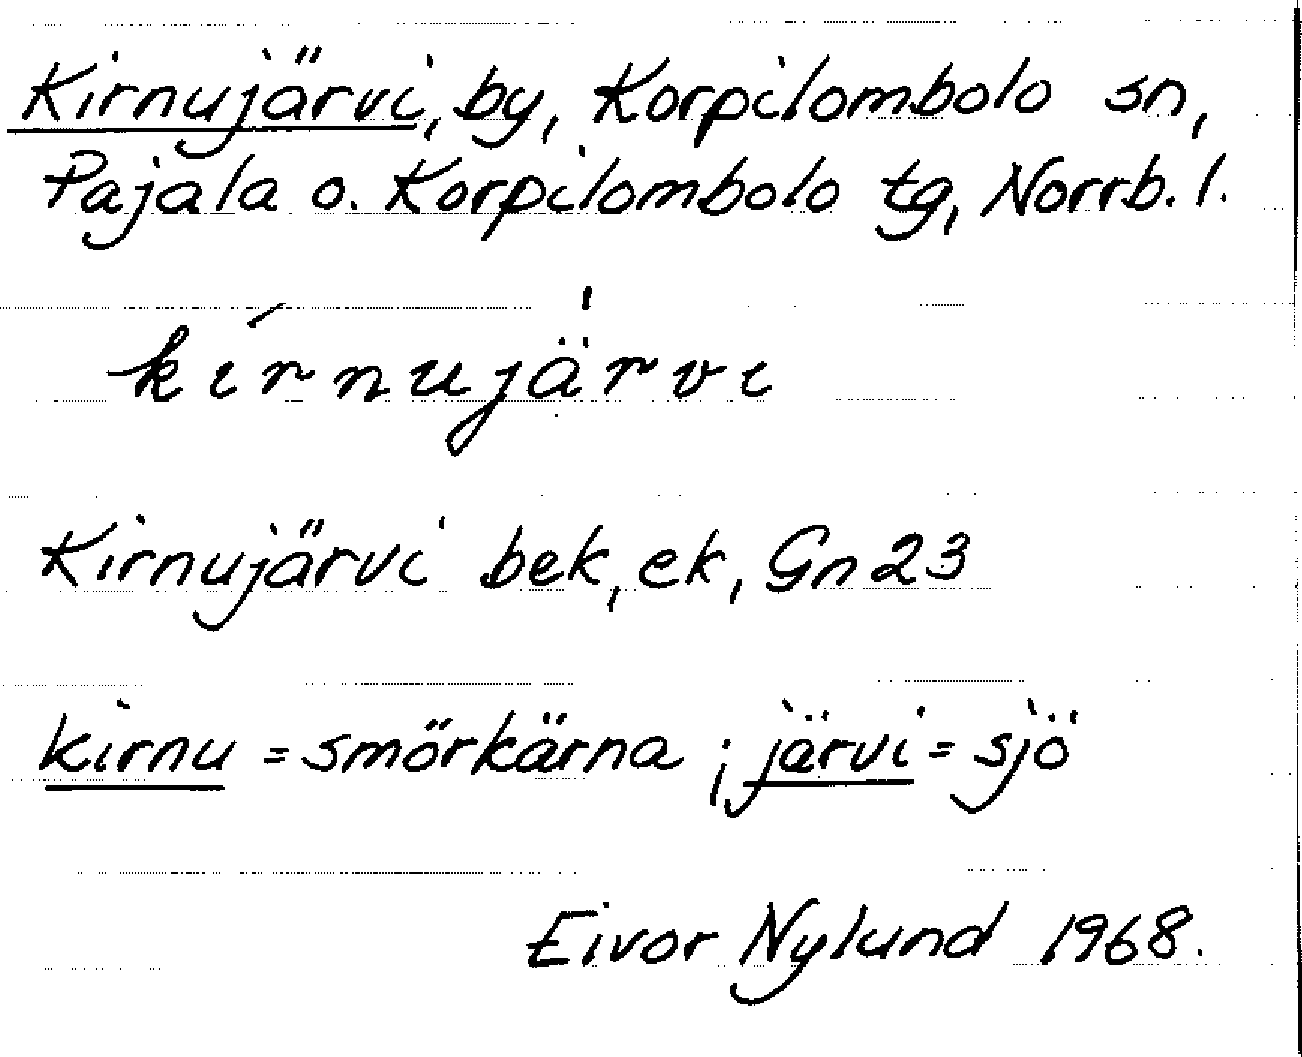 Kirnujärvi, by, Korpilombolo sn,
Pajala o. Korpilombolo tg, Norrb. l.
kírnujä̍rvi
Kirnujärvi bek, ek, Gn 23
kirnu = smörkärna ; järvi = sjö
Eivor Nylund 1968.